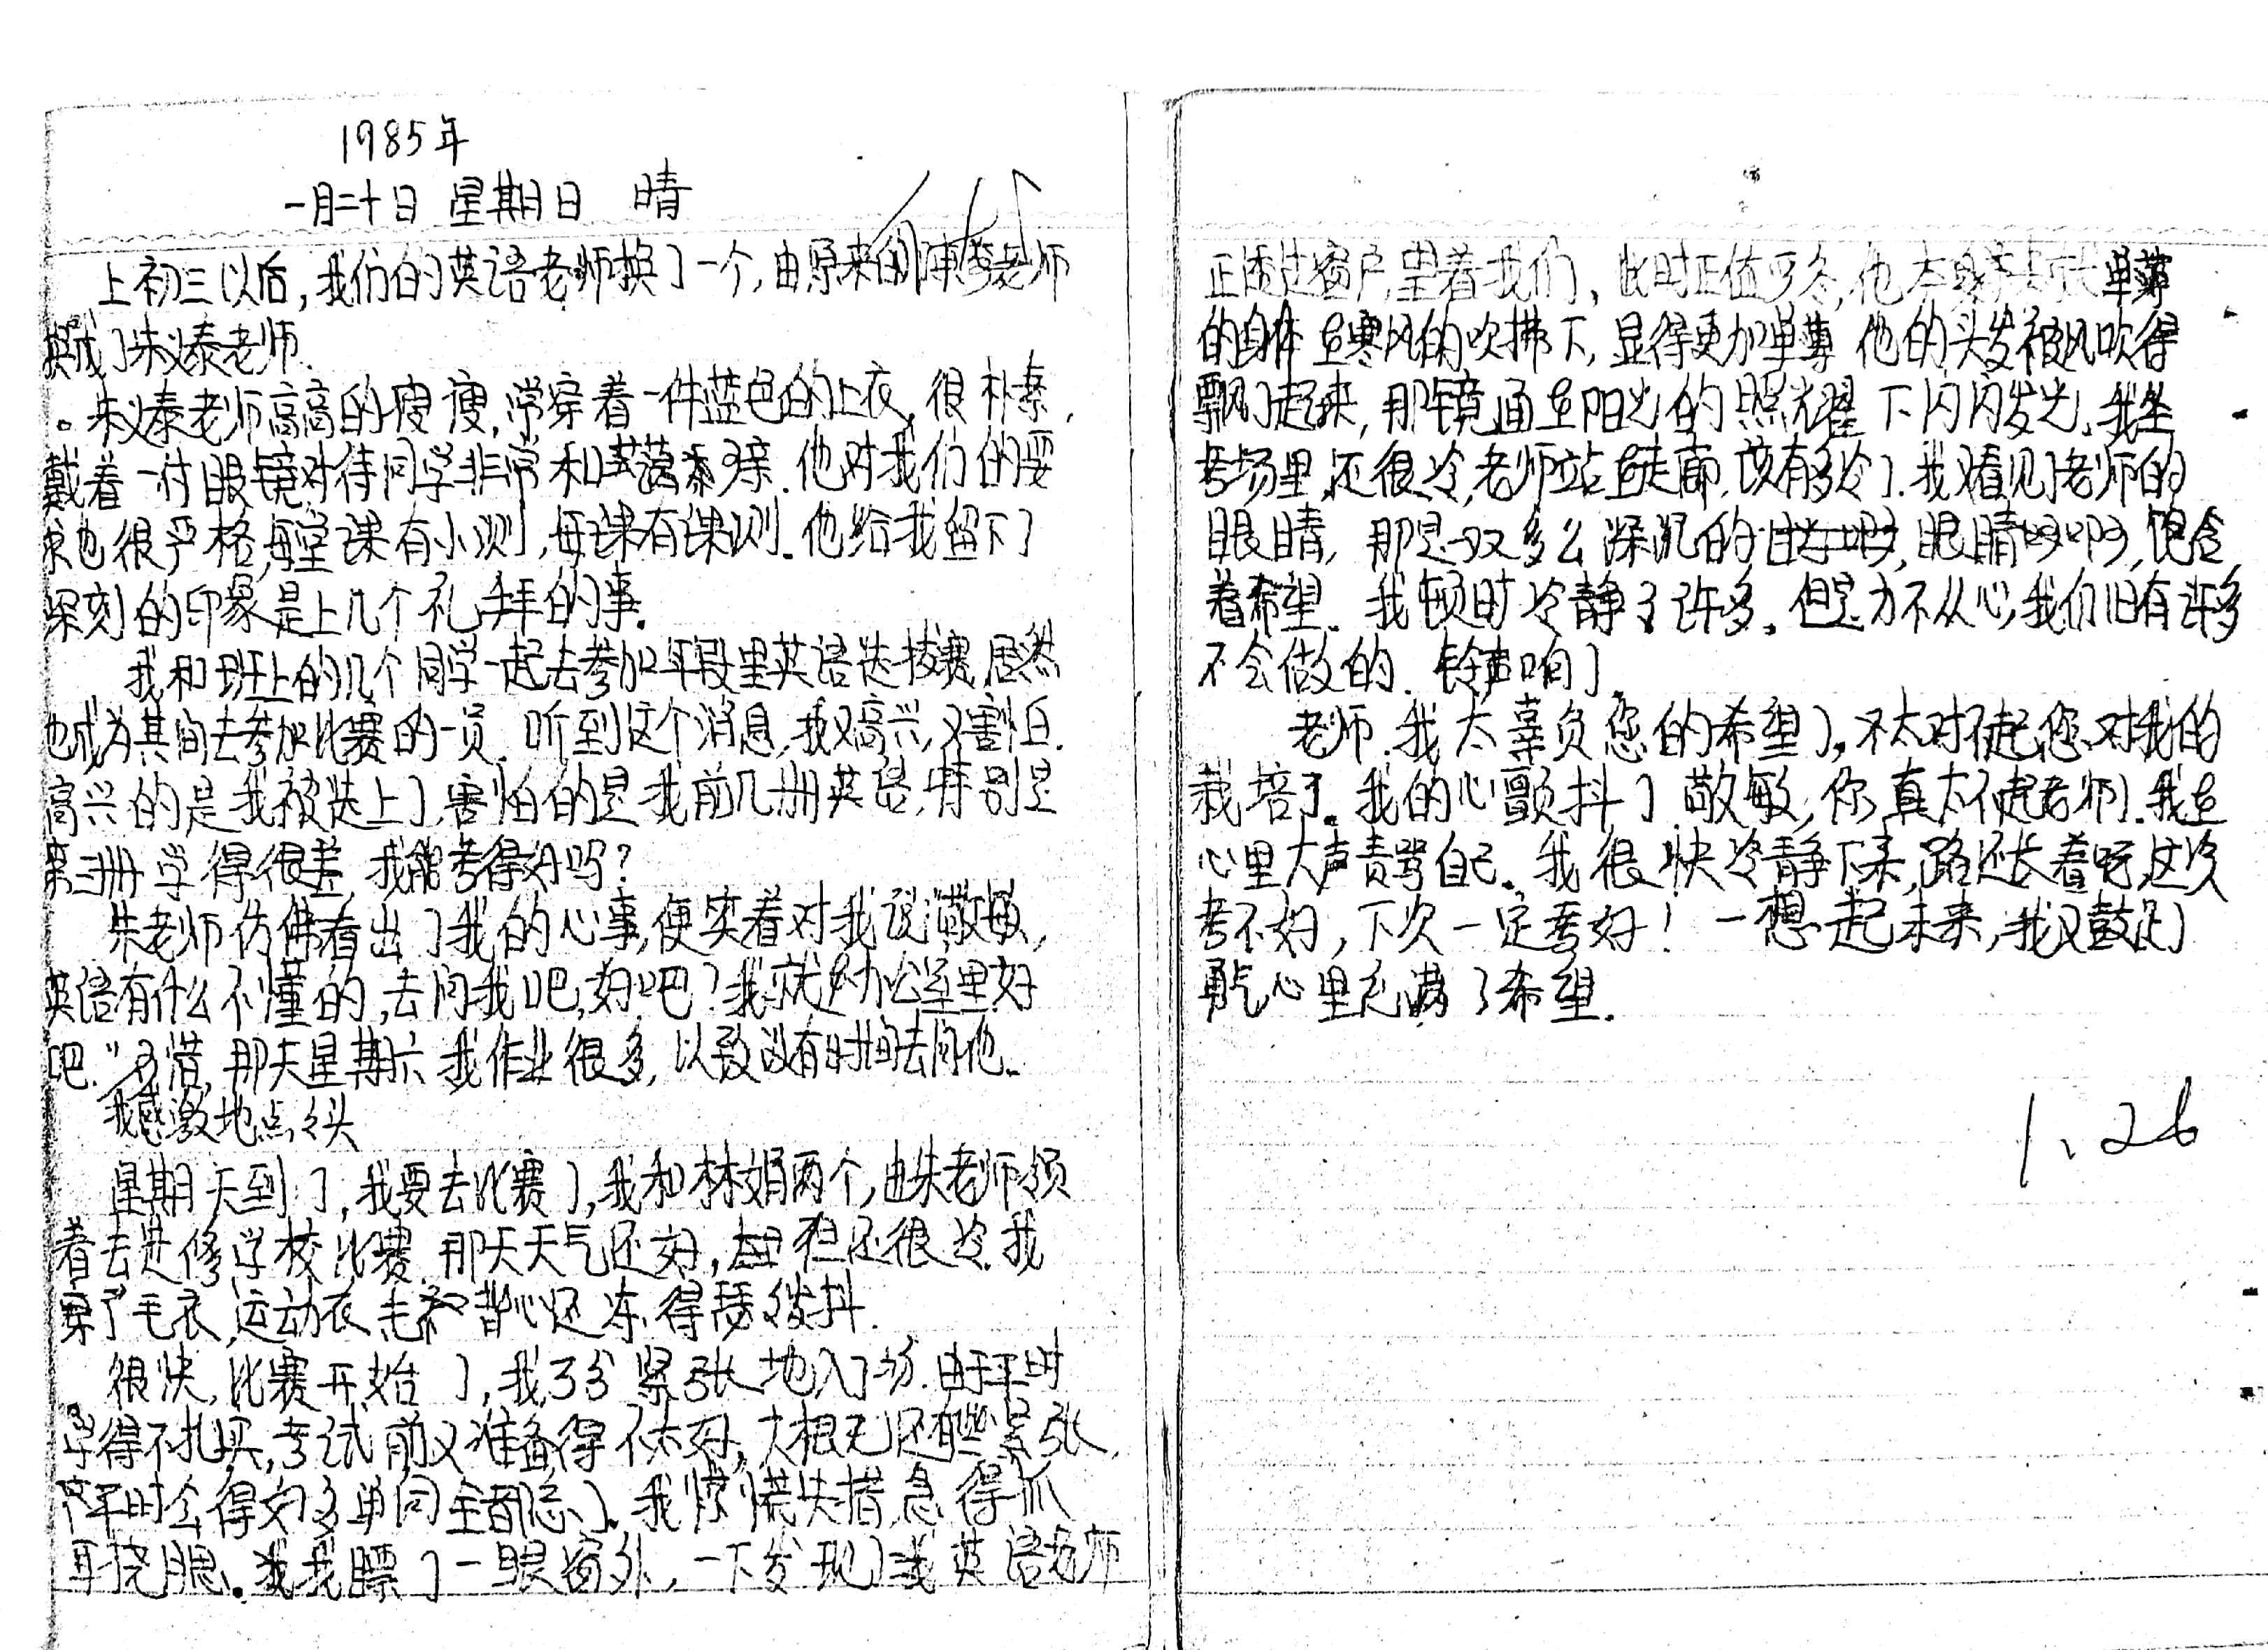 1985年
一月二十日 星期日 晴
上初三以后,我们的英语老师换了一个,由原来的陈老师
换成了朱义泰老师.
朱义泰老师高高的瘦瘦,常穿着一件蓝色的上衣,很朴素,
戴着一付眼镜对待同学非常和蔼可亲.他对我们的要
求也很严格,每堂课有小测,每课有课测.他给我留下了
深刻的印象是上几个礼拜的事.
我和班上的几个同学一起去参加年段里英语选拔赛,居然
也成为其间去参加比赛的一员.听到这个消息,我又高兴,又害怕.
高兴的是我被选上了,害怕的是我前几册英语,特别是
第三册学得很差,我能考得好吗?
朱老师仿佛看出了我的心事,便笑着对我说:"敬敏,
英语有什么不懂的,去问我吧,好吧?我就在办公室里好
吧."可惜,那天星期六我作业很多,以致没有时间去问他.
我感激地点点头
星期天到了,我要去比赛了,我和林娟两个,由朱老师领
着去进修学校比赛.那天天气还好,但还很冷.我
穿了毛衣,运动衣,毛背心还冻得瑟瑟发抖.
很快,比赛开始了,我万分紧张地入了场.由于平时
学得不扎实,考试前又准备得不太好,大根无还有些紧张,
平时会得好多单词全都忘了.我惊慌失措,急得抓
耳挠腮.我瞟了一眼窗外,一下发现了我英语老师
正透过窗户,望着我们,此时正值严冬,他本单薄
的身体在寒风的吹拂下,显得更加单薄 他的头发被风吹得
飘了起来,那镜面在阳光的照耀下闪闪发光.我坐
考场里,还很冷,老师站在走廊,该有多冷了.我又看见了老师的
眼睛,那是一双多么深沉的眼睛啊,饱含
着希望.我顿时冷静了许多.但是力不从心,我们旧有许多
不会做的.铃声响了.
老师.我太辜负您的希望了,太对不起您对我的
栽培了.我的心颤抖了 敬敏,你真太不起老师了.我在
心里大声责骂自己.我很快冷静下来,路还长着呢,这次
考不好,下次一定考好!一想起未来,我又鼓足了
勇气心里充满了希望.
1.26